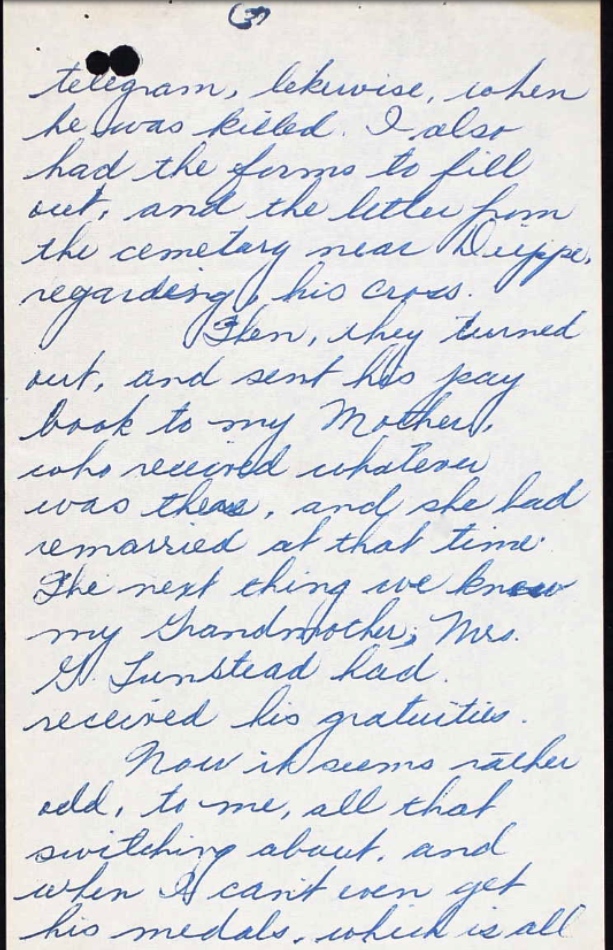 (3)
telegram, lekewise, when
he was killed. I also
had the forms to fill
out, and the letter from
the cemetary near Dieppe,
regarding, his cross.
Then, they turned
out, and sent his pay
book to my Mother,
who received whatever
was there, and she had
remarried at that time.
The next thing we knew
my Grandmother, Mrs.
G. Tunstead had
received his gratuities.
Now it seems rather
odd, to me, all that
switching about, and
when I can't even get
his medals, which is all